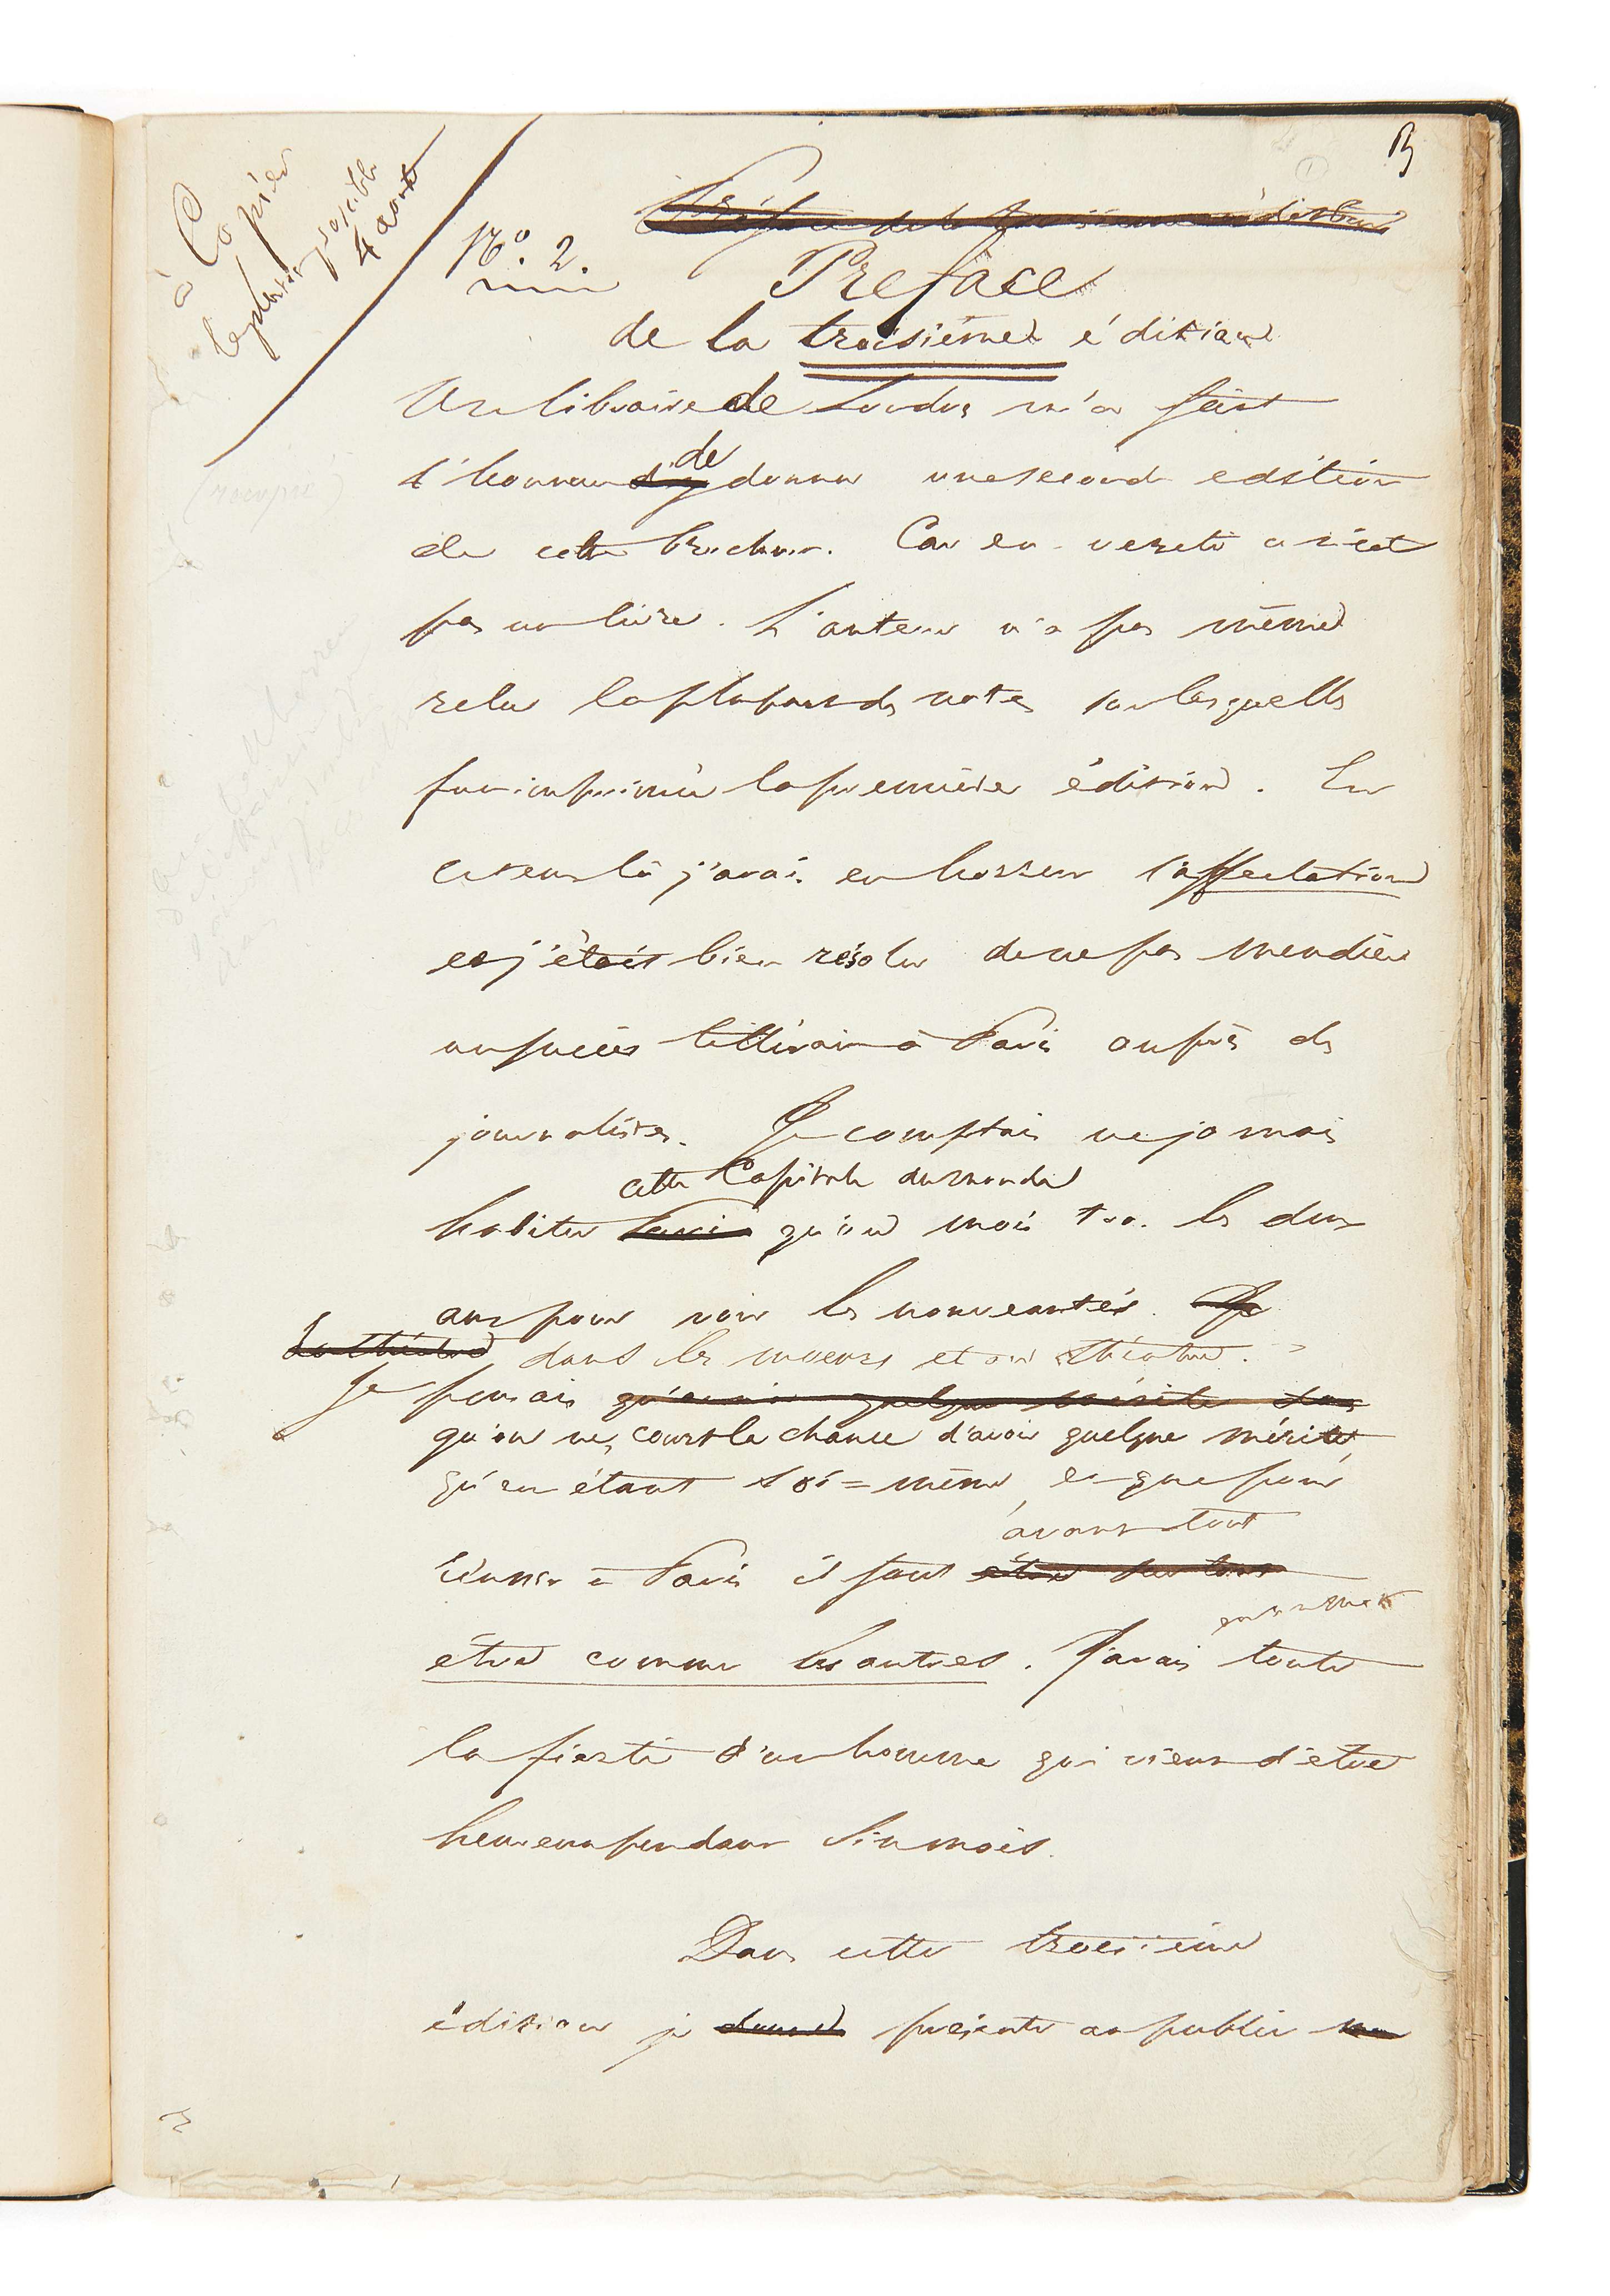 à Copier
le plus possible
4 aout
No. 2.
Préface de la troisième édition
Preface
de la troisième édition
Un libraire de Londres m'a fait
l'honneur d'y de donner une seconde edition
de cette brochure. Car en verité ce n'est
pas un livre. L'auteur n'a pas même
relu la plupart des notes sur lesquelles
fut imprimée la première édition. En
ce tems là j'avais en horreur l'affectation
et j'étais bien résolu de ne pas mendier
un succès littéraire à Paris auprès des
journalistes. Je comptais ne jamais
cette Capitale du monde
habiter Paris qu'un mois tous les deux
ans pour voir les nouveautés. Je
dans les moeurs et au théâtre.
Je pensais qu'avoir quelque mérite dans
qu'on ne court la chance d'avoir quelque mérite
qu'en étant soi=même, et que pour
avant tout
réussir à Paris il faut être sur tout
être comme les autres. J'avais toute
la fierté d'un homme qui vient d'être
heureux pendant six mois.
Dans cette troisième
édition je donne présente au public un